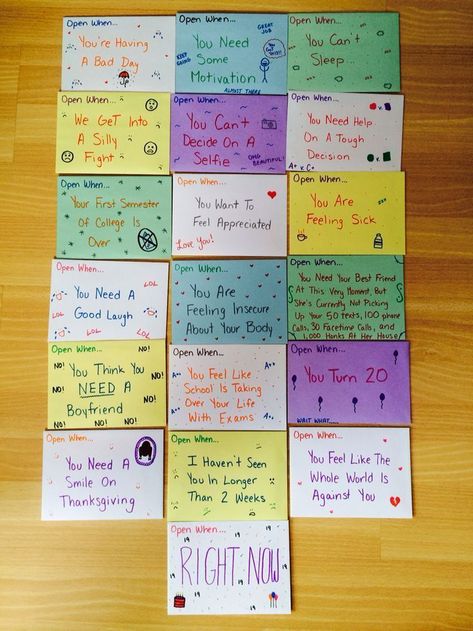 Open When...
You're Having
A Bad
Day
Open When...
GREAT
JOB
KEEP
GOING
You Need
Some
Motivation
ALMOST THERE
Open When...
You Can't
Sleep
Open When...
We Get Into
A Silly
Fight
Open When...
You Can't
Decide On A
Selfie
OMG
BEAUTIFUL!
Open When...
You Need Help
On A Tough
Decision
A+ v. C+
Open When...
Your First Semester
Of College Is
Over
Open When...
You Want To
Feel Appreciated
Love You!
Open When...
You Are
Feeling Sick
Open When...
LOL
You Need A
Good Laugh
LOL
LOL
LOL
Open When...
You Are
Feeling Insecure
About Your Body
Open When...
You Need Your Best Friend
At This Very Moment, But
She's Currently Not Picking
Up Your 50 texts, 100 phone
Calls, 30 Facetime Calls, and
1,000 Honks At Her House
Open When...
NO!
NO!
You Think You
NO!
NEED A
NO!
Boyfriend
NO!
NO!
NO!
Open When...
You Feel Like
School Is Taking
Over Your Life
With Exams
Open When...
You Turn 20
WAIT WHAT...
Open When...
You Need A
Smile On
Thanksgiving
Open When...
I Haven't Seen
You In Longer
Than 2 Weeks
Open When...
You Feel Like The
Whole World Is
Against You
Open When...
19
19
RIGHT NOW
19
19
19